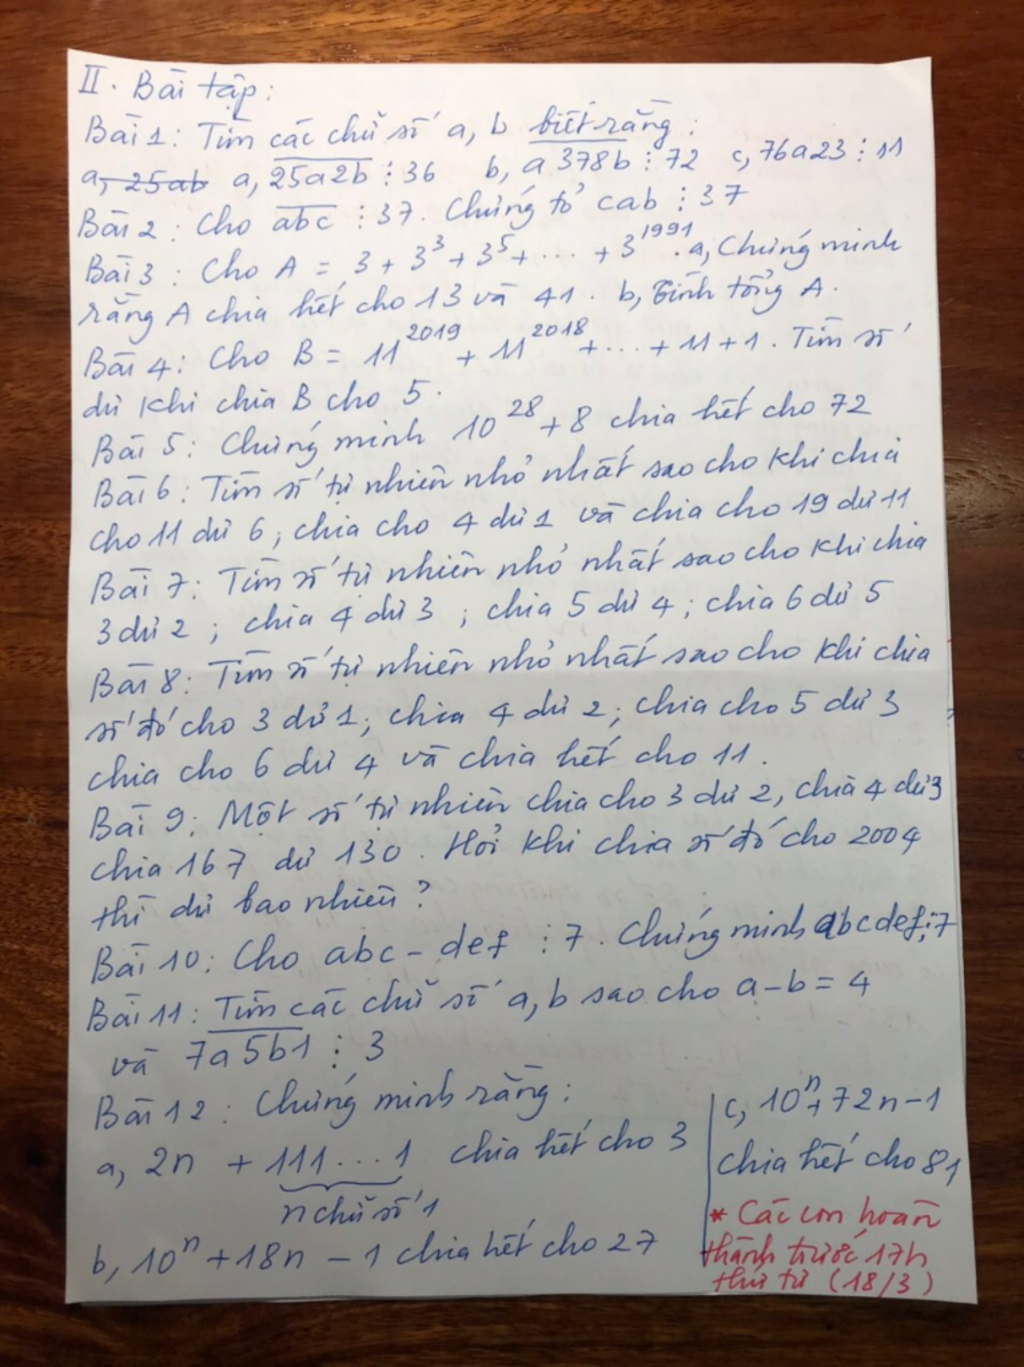 II. Bài tập:
Bài 1: Tìm các chữ số a, b biết rằng:
a, 25ab a, 25a2b ⋮ 36 b, a378b ⋮ 72 c, 76a23 ⋮ 11
Bài 2: Cho abc ⋮ 37. Chứng tỏ cab ⋮ 37
Bài 3: Cho A = 3 + 3³ + 3⁵ + ... + 3¹⁹⁹¹. a, Chứng minh
rằng A chia hết cho 13 và 41. b, Tính tổng A.
Bài 4: Cho B = 11²⁰¹⁹ + 11²⁰¹⁸ + ... + 11 + 1. Tìm số
dư khi chia B cho 5.
Bài 5: Chứng minh 10²⁸ + 8 chia hết cho 72
Bài 6: Tìm số tự nhiên nhỏ nhất sao cho khi chia
cho 11 dư 6, chia cho 4 dư 1 và chia cho 19 dư 11
Bài 7: Tìm số tự nhiên nhỏ nhất sao cho khi chia
3 dư 2; chia 4 dư 3; chia 5 dư 4; chia 6 dư 5
Bài 8: Tìm số tự nhiên nhỏ nhất sao cho khi chia
số đó cho 3 dư 1; chia 4 dư 2; chia cho 5 dư 3
chia cho 6 dư 4 và chia hết cho 11.
Bài 9: Một số tự nhiên chia cho 3 dư 2, chia 4 dư 3
chia 167 dư 130. Hỏi khi chia số đó cho 2004
thì dư bao nhiêu?
Bài 10: Cho abc - def ⋮ 7. Chứng minh abcdef ⋮ 7
Bài 11: Tìm các chữ số a, b sao cho a - b = 4
và 7a5b1 ⋮ 3
Bài 12: Chứng minh rằng:
a, 2n + 111...1 chia hết cho 3
n chữ số 1
b, 10ⁿ + 18n - 1 chia hết cho 27
c, 10ⁿ + 72n - 1
chia hết cho 81
* Các con hoàn
thành trước 17h
thứ tư (18/3)